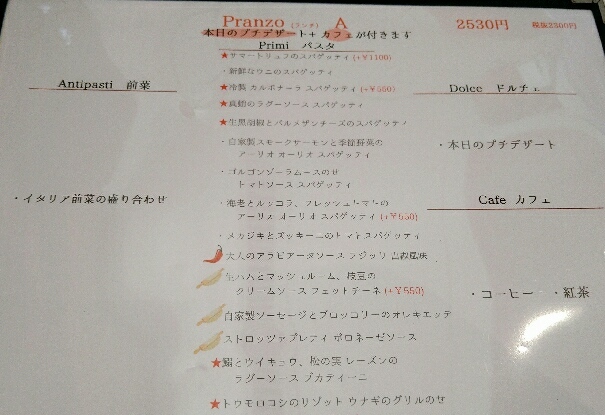 Pranzo (ランチ) A
2530円 税抜2300円
本日のプチデザート+ カフェが付きます
Primi パスタ
Antipasti 前菜
・イタリア前菜の盛り合わせ
★サマートリュフのスパゲッティ(+¥1100)
・新鮮なウニのスパゲッティ
★冷製 カルボナーラ スパゲッティ (+¥550)
★真鯛のラグーソース スパゲッティ
★生黒胡椒とパルメザンチーズのスパゲッティ
・自家製スモークサーモンと季節野菜の
アーリオ オーリオ スパゲッティ
・ゴルゴンゾーラムースのせ
トマトソース スパゲッティ
・海老とルッコラ、フレッシュトマトの
アーリオ オーリオ スパゲッティ (+¥550)
・メカジキとズッキーニのトマトスパゲッティ
大人のアラビアータソース フジッリ 山椒風味
生ハムとマッシュルーム、枝豆の
クリームソース フェットチーネ (+¥550)
自家製ソーセージとブロッコリーのオレキエッテ
ストロッツァプレティ ボロネーゼソース
★鰯とウイキョウ、松の実 レーズンの
ラグーソース ブカティーニ
★トウモロコシのリゾット ウナギのグリルのせ
Dolce ドルチェ
・本日のプチデザート
Cafe カフェ
・コーヒー ・紅茶